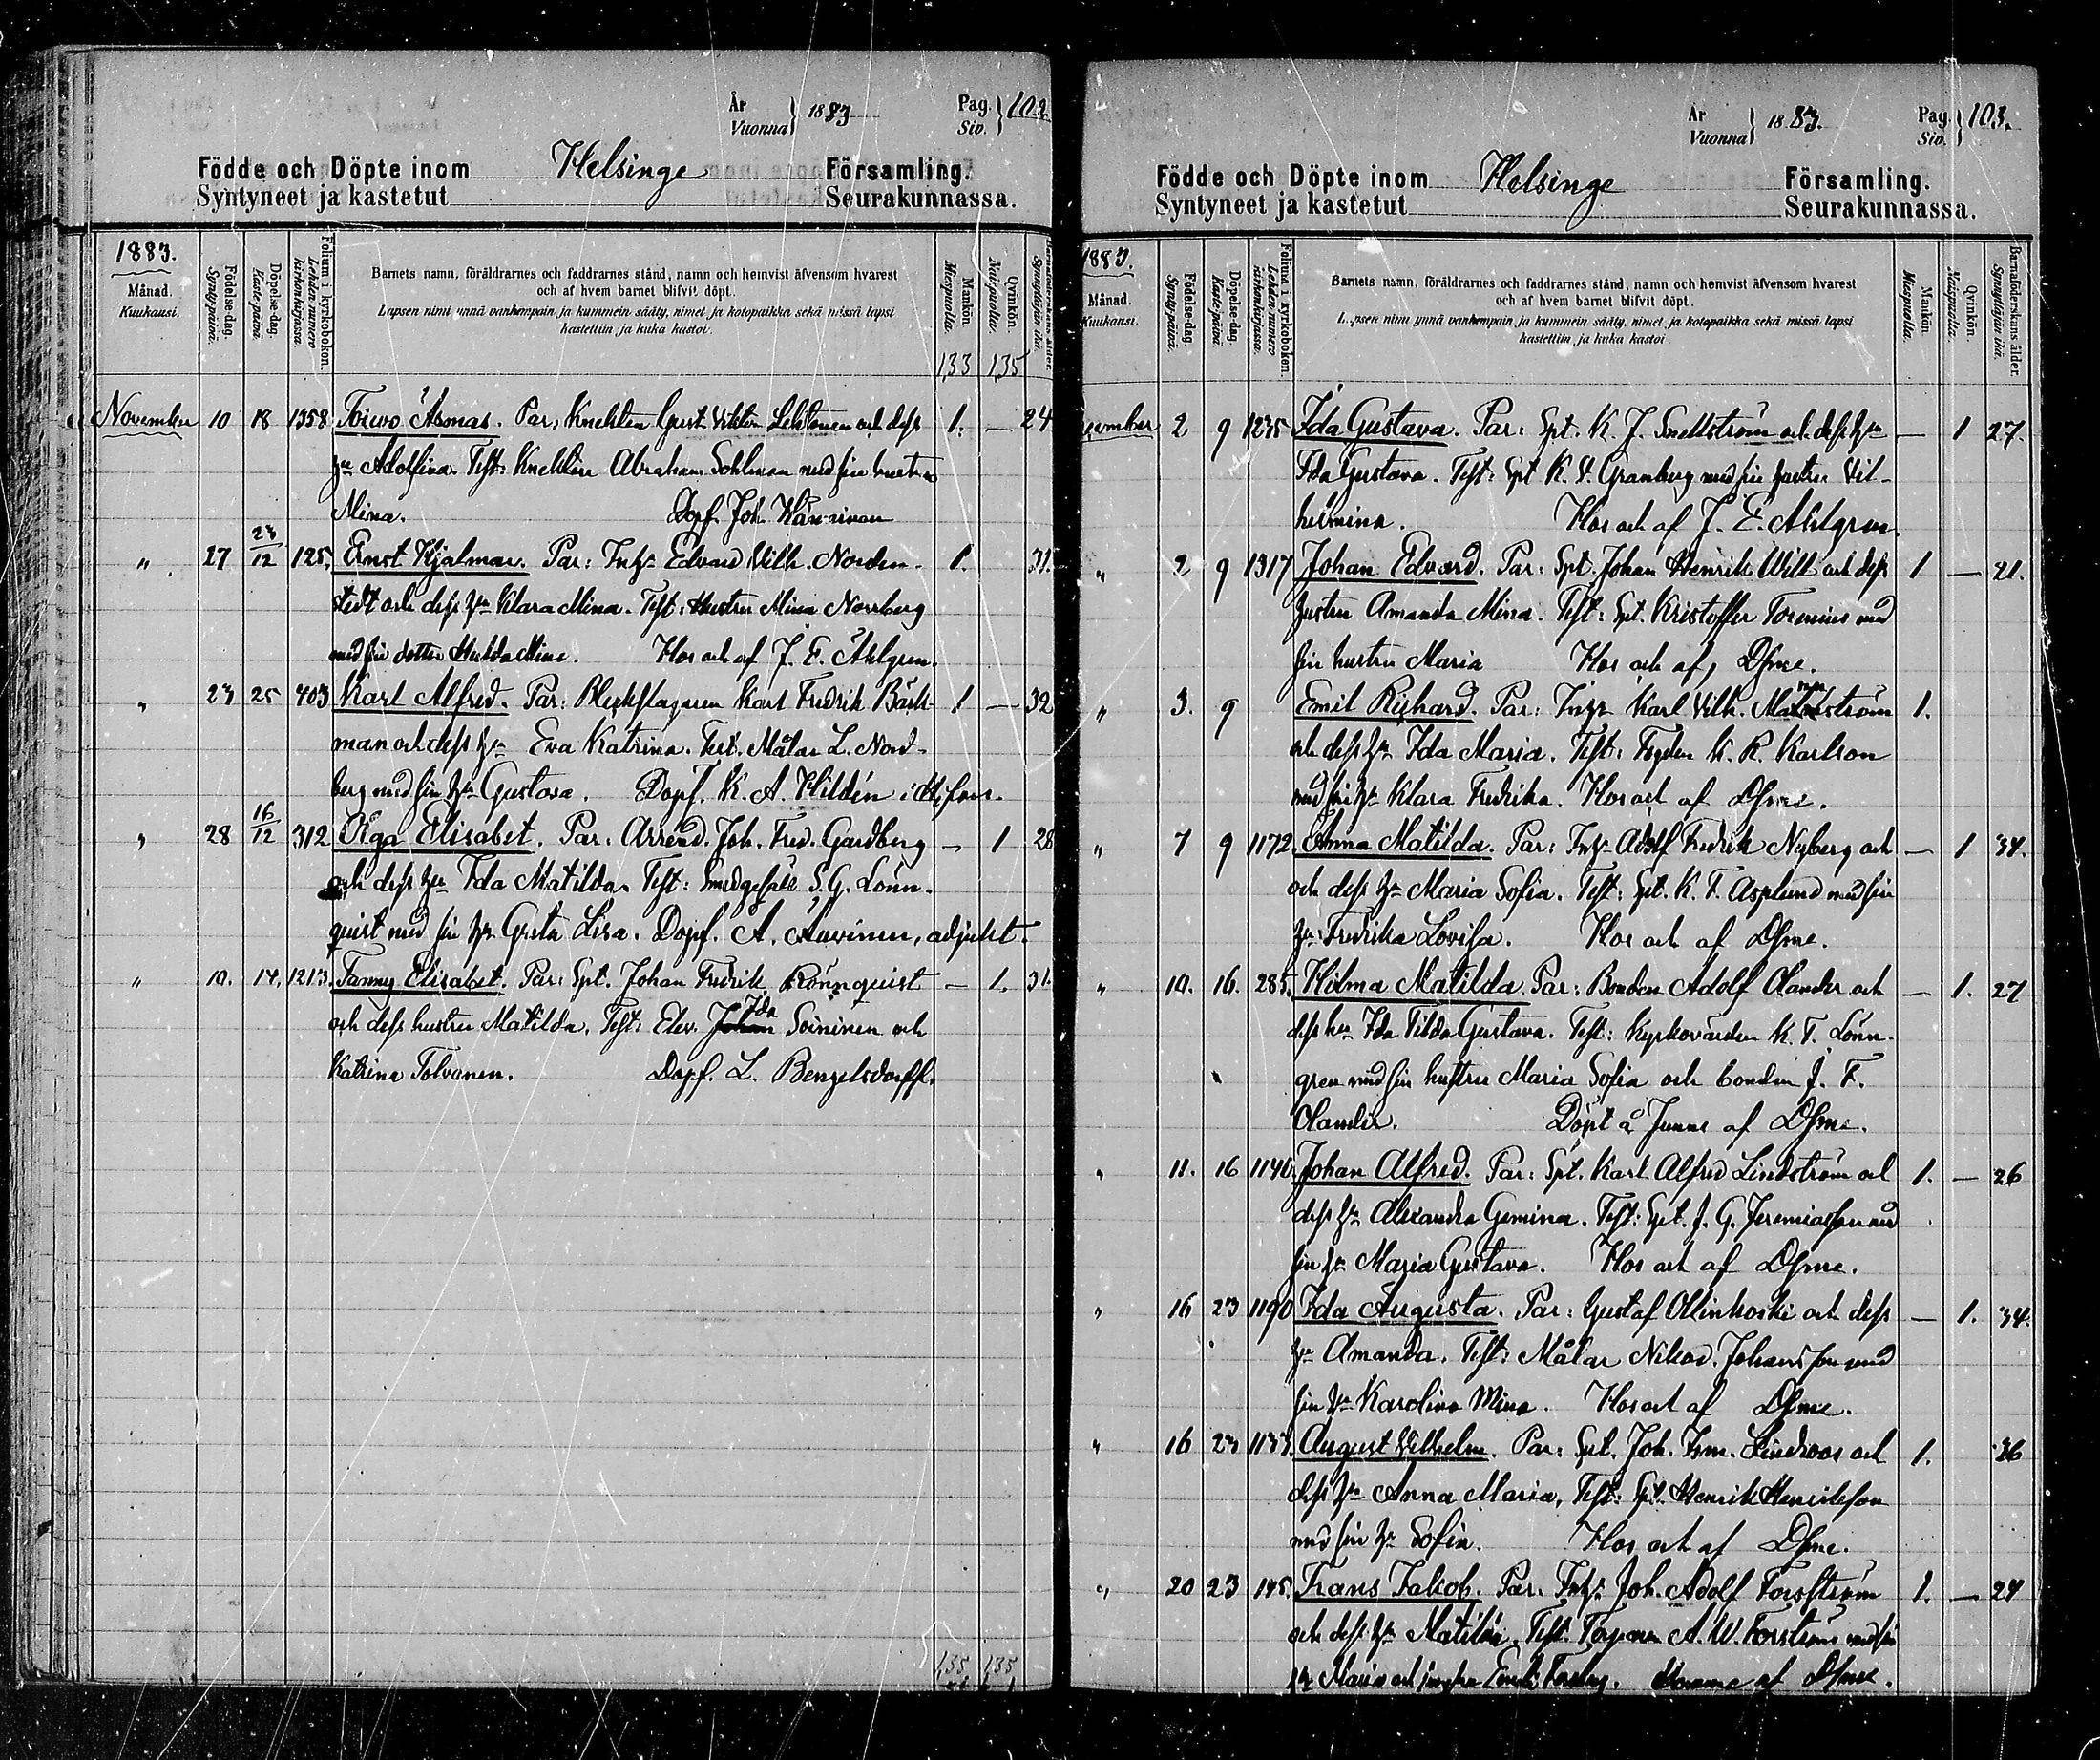 År
Vuonna } 1883
Pag.
Siv. } 102.
Födde och Döpte inom Helsinge Församling.
Syntyneet ja kastetut Seurakunnassa.
1883.
Månad.
Kuukausi.
Födelse-dag.
Syntypäivä.
Döpelse-dag.
Kastepäivä.
Folium i kyrkoboken.
Lehden numero
kirkonkirjassa.
Barnets namn, föräldrarnes och faddrarnes stånd, namn och hemvist äfvensom hvarest
och af hvem barnet blifvit döpt.
Lapsen nimi ynnä vanhempain ja kummein sääty, nimet ja kotopaikka sekä missä lapsi
kastettiin ja kuka kastoi.
Mankön
Miespuolia.
Qvinkön.
Naispuolia.
133 135
November 10 18 1358 Toiwo Asmas. Par: Knekten Gust. Viktor Lehtonen och dess 1. — 24
hu Adolfina. Test: Knekten Abraham Sohlman med sin hustru
Mina. Döpf. Joh.
" 27 23/12 125. Ernst Hjalmar. Par: Inhys Edvard Vilh. Norden- 1. 31.
stedt och dess hu Klara Mina. Test: Hustru Mina Norrberg
med sin dotter Hulda Mina. Hos och af J. E. Ahlgren.
" 23 25 403 Karl Alfred. Par: Bleckslagaren Karl Fredrik Bäck- 1 — 32
man och dess hu Eva Katrina. Test. Målar L. Nord-
berg med sin hu Gustava. Döpf. K. A. Hildén i H:fors.
" 28 16/12 312 Olga Elisabet. Par: Arrend. Joh. Fred. Gardberg — 1 28
och dess hu Ida Matilda. Test: Smedgesäll S. G. Lönn-
quist med sin hu Greta Lisa. Döpf. A. Auvinen, adjukt.
" 10. 14. 1213. Fanny Elisabet. Par: Spt. Johan Fredrik Rönnquist — 1. 31.
och dess hustru Matilda. Test: Elev. Ida Soininen och
Katrina Tolvanen. Döpf. L. Bengelsdorff.
135 135
År
Vuonna } 1883.
Pag.
Siv. } 103.
Födde och Döpte inom Helsinge Församling.
Syntyneet ja kastetut Seurakunnassa.
1883.
Månad.
Kuukausi.
Födelse-dag.
Syntypäivä.
Döpelse-dag.
Kastepäivä.
Folium i kyrkoboken.
Lehden numero
kirkonkirjassa.
Barnets namn, föräldrarnes och faddrarnes stånd, namn och hemvist äfvensom hvarest
och af hvem barnet blifvit döpt.
Lapsen nimi ynnä vanhempain ja kummein sääty, nimet ja kotopaikka sekä missä lapsi
kastettiin ja kuka kastoi.
Mankön.
Miespuolia.
Qvinkön.
Naispuolia.
Barnaföderskans ålder.
Synnyttäjän ikä.
cember 2 9 1235 Ida Gustava. Par: Spt. K. J. Snellström och dess hu — 1 27.
Ida Gustava. Test: Spt K. V. Granberg med sin hustru Vil-
helmina. Hos och af J. E. Ahlgren.
" 2 9 1317 Johan Edvard. Par: Spt. Johan Henrik Wilk och dess 1 — 21.
hustru Amanda Mina. Test: Spt. Kristoffer Torenius med
sin hustru Maria Hos och af, Dsme.
" 3. 9 Emil Rikhard. Par: Inhys Karl Vilh. Malmström 1.
och dess hu Ida Maria. Test: K. R. Karlson
med sin hu Klara Fredrika. Hos och af Dsme.
" 7 9 1172. Anna Matilda. Par: Inhys Adolf Fredrik Nyberg och — 1 34.
och dess hu Maria Sofia. Test: Spt. K. F. Asplund med sin
hu Fredrika Lovisa. Hos och af Dsme.
" 10. 16. 285. Hilma Matilda. Par: Bonden Adolf Olander och — 1. 27
dess hu Ida Tilda Gustava. Test: Kyrkovärden K. F. Lönn-
gren med sin hustru Maria Sofia och bonden J. F.
Olander. Döpt å Junns af Dsme.
" 11. 16 1140. Johan Alfred. Par: Spt. Karl Alfred Lindström och 1. — 26
dess hu Alexandra Gemina. Test: Spt. J. G. Jeremiasson med
sin hu Maria Gustava. Hos och af Dsme.
" 16 23 1190 Ida Augusta. Par: Gustaf Ollinkoski och dess — 1. 34.
hu Amanda. Test: Målar Nikod. Johansson med
sin hu Karolina Mina. Hos och af Dsme.
" 16 23 1133. August Vilhelm. Par: Spt. Joh. Imm. Lindroos och 1. 36
dess hu Anna Maria, Test: Spt. Henrik Henriksson
med sin hu Sofia. Hos och af Dsme.
" 20 23 145. Frans Jakob. Par: Inhys Joh. Adolf Forsström 1. — 24
och dess hu Matilda. Test: Torparen A. W. Forström med sin
hu Maria och jungfru af Dsme.